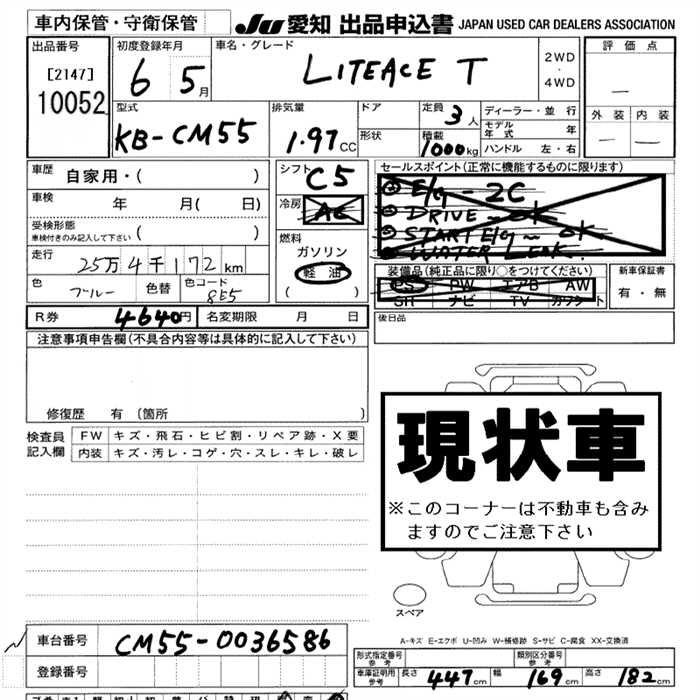 車内保管・守衛保管
JU 愛知 出品申込書 JAPAN USED CAR DEALERS ASSOCIATION
出品番号
[2147]
10052
初度登録年月
6 5月
車名・グレード
LITEACE T
2WD
・
4WD
評価点
—
外装 内装
— —
型式
KB-CM55
排気量
1.97 CC
ドア
形状
定員 3 人
積載 1000 kg
ディーラー・並行
モデル年式 年
ハンドル 左・右
車歴 自家用・( )
車検 年 月( 日)
受検形態
車検付きのみ記入して下さい ( )
走行 25万4千172 km
色 ブルー 色替 色コード 8E5
シフト C5
冷房 AC
燃料
ガソリン
軽油
( )
セールスポイント(正常に機能するものに限ります)
① E/g - 2C
② DRIVE - OK
③ START E/g - OK
④ WATER LEAK.
装備品(純正品に限り○をつけてください)
PS PW エアB AW
SR ナビ TV カワシート
新車保証書
有・無
R券 4640円 名変期限 月 日
後日品
注意事項申告欄(不具合内容等は具体的に記入して下さい)
修復歴 有 〔箇所 〕
検査員記入欄
FW キズ・飛石・ヒビ割・リペア跡・X要
内装 キズ・汚レ・コゲ・穴・スレ・キレ・破レ
現状車
※このコーナーは不動車も含み
ますのでご注意下さい
スペア
A-キズ E-エクボ U-凹み W-補修跡 S-サビ C-腐食 XX-交換済
車台番号 CM55-0036586
登録番号
形式指定番号 参考 類別区分番号 参考
車庫証明用 参考 長さ 447cm 幅 169cm 高さ 182cm